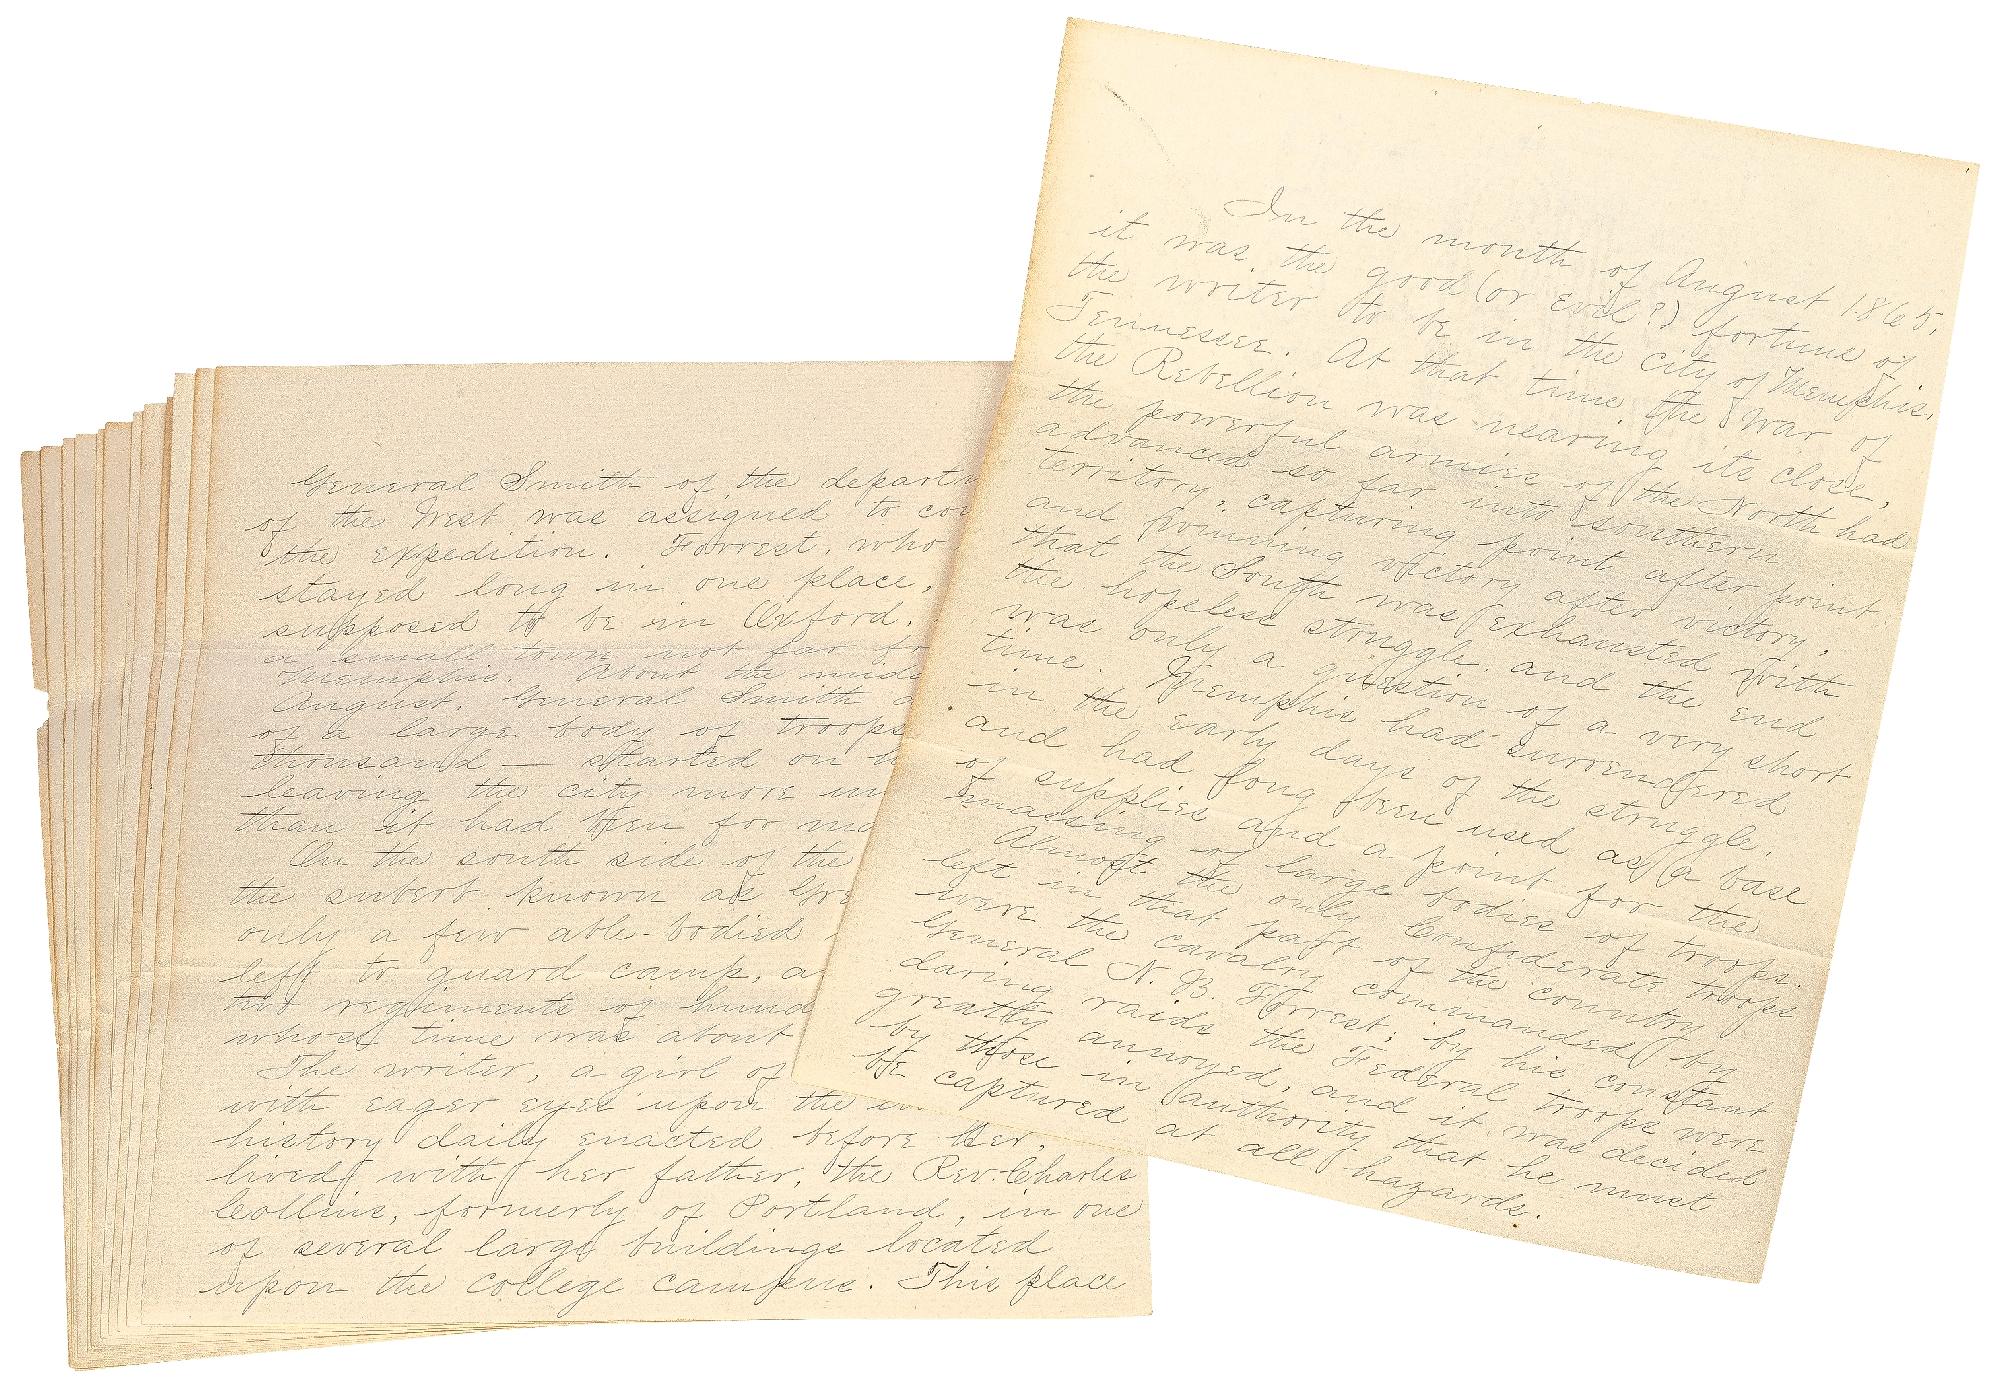 In the month of August 1865,
it was the good (or evil?) fortune of
the writer to be in the city of Memphis,
Tennessee. At that time the war of
the Rebellion was nearing its close,
the powerful armies of the North had
advanced so far into southern
territory, capturing point after point,
and winning victory after victory,
that the South was exhausted with
the hopeless struggle, and the end
was only a question of a very short
time. Memphis had surrendered
in the early days of the struggle,
and had long been used as a base
of supplies and a point for the
massing of large bodies of troops.
Almost the only Confederate troops
left in that part of the country
were the cavalry commanded by
General N. B. Forrest; by his constant
daring raids the Federal troops were
greatly annoyed, and it was decided
by those in authority that he must
be captured at all hazards.
General Smith of the departm
of the West was assigned to co
the expedition. Forrest, who
stayed long in one place,
supposed to be in Oxford,
a small town not far fr
Memphis. About the midd
August, General Smith a
of a large body of troops
thousand — started on
leaving the city more un
than it had been for mo
On the south side of the
the suberb known as Gre
only a few able-bodied
left to guard camp, a
two regiments of hund
whose time was about
The writer, a girl of
with eager eyes upon the
history daily enacted before her,
lived with her father, the Rev. Charles
Collins, formerly of Portland, in one
of several large buildings located
upon the college campus. This place